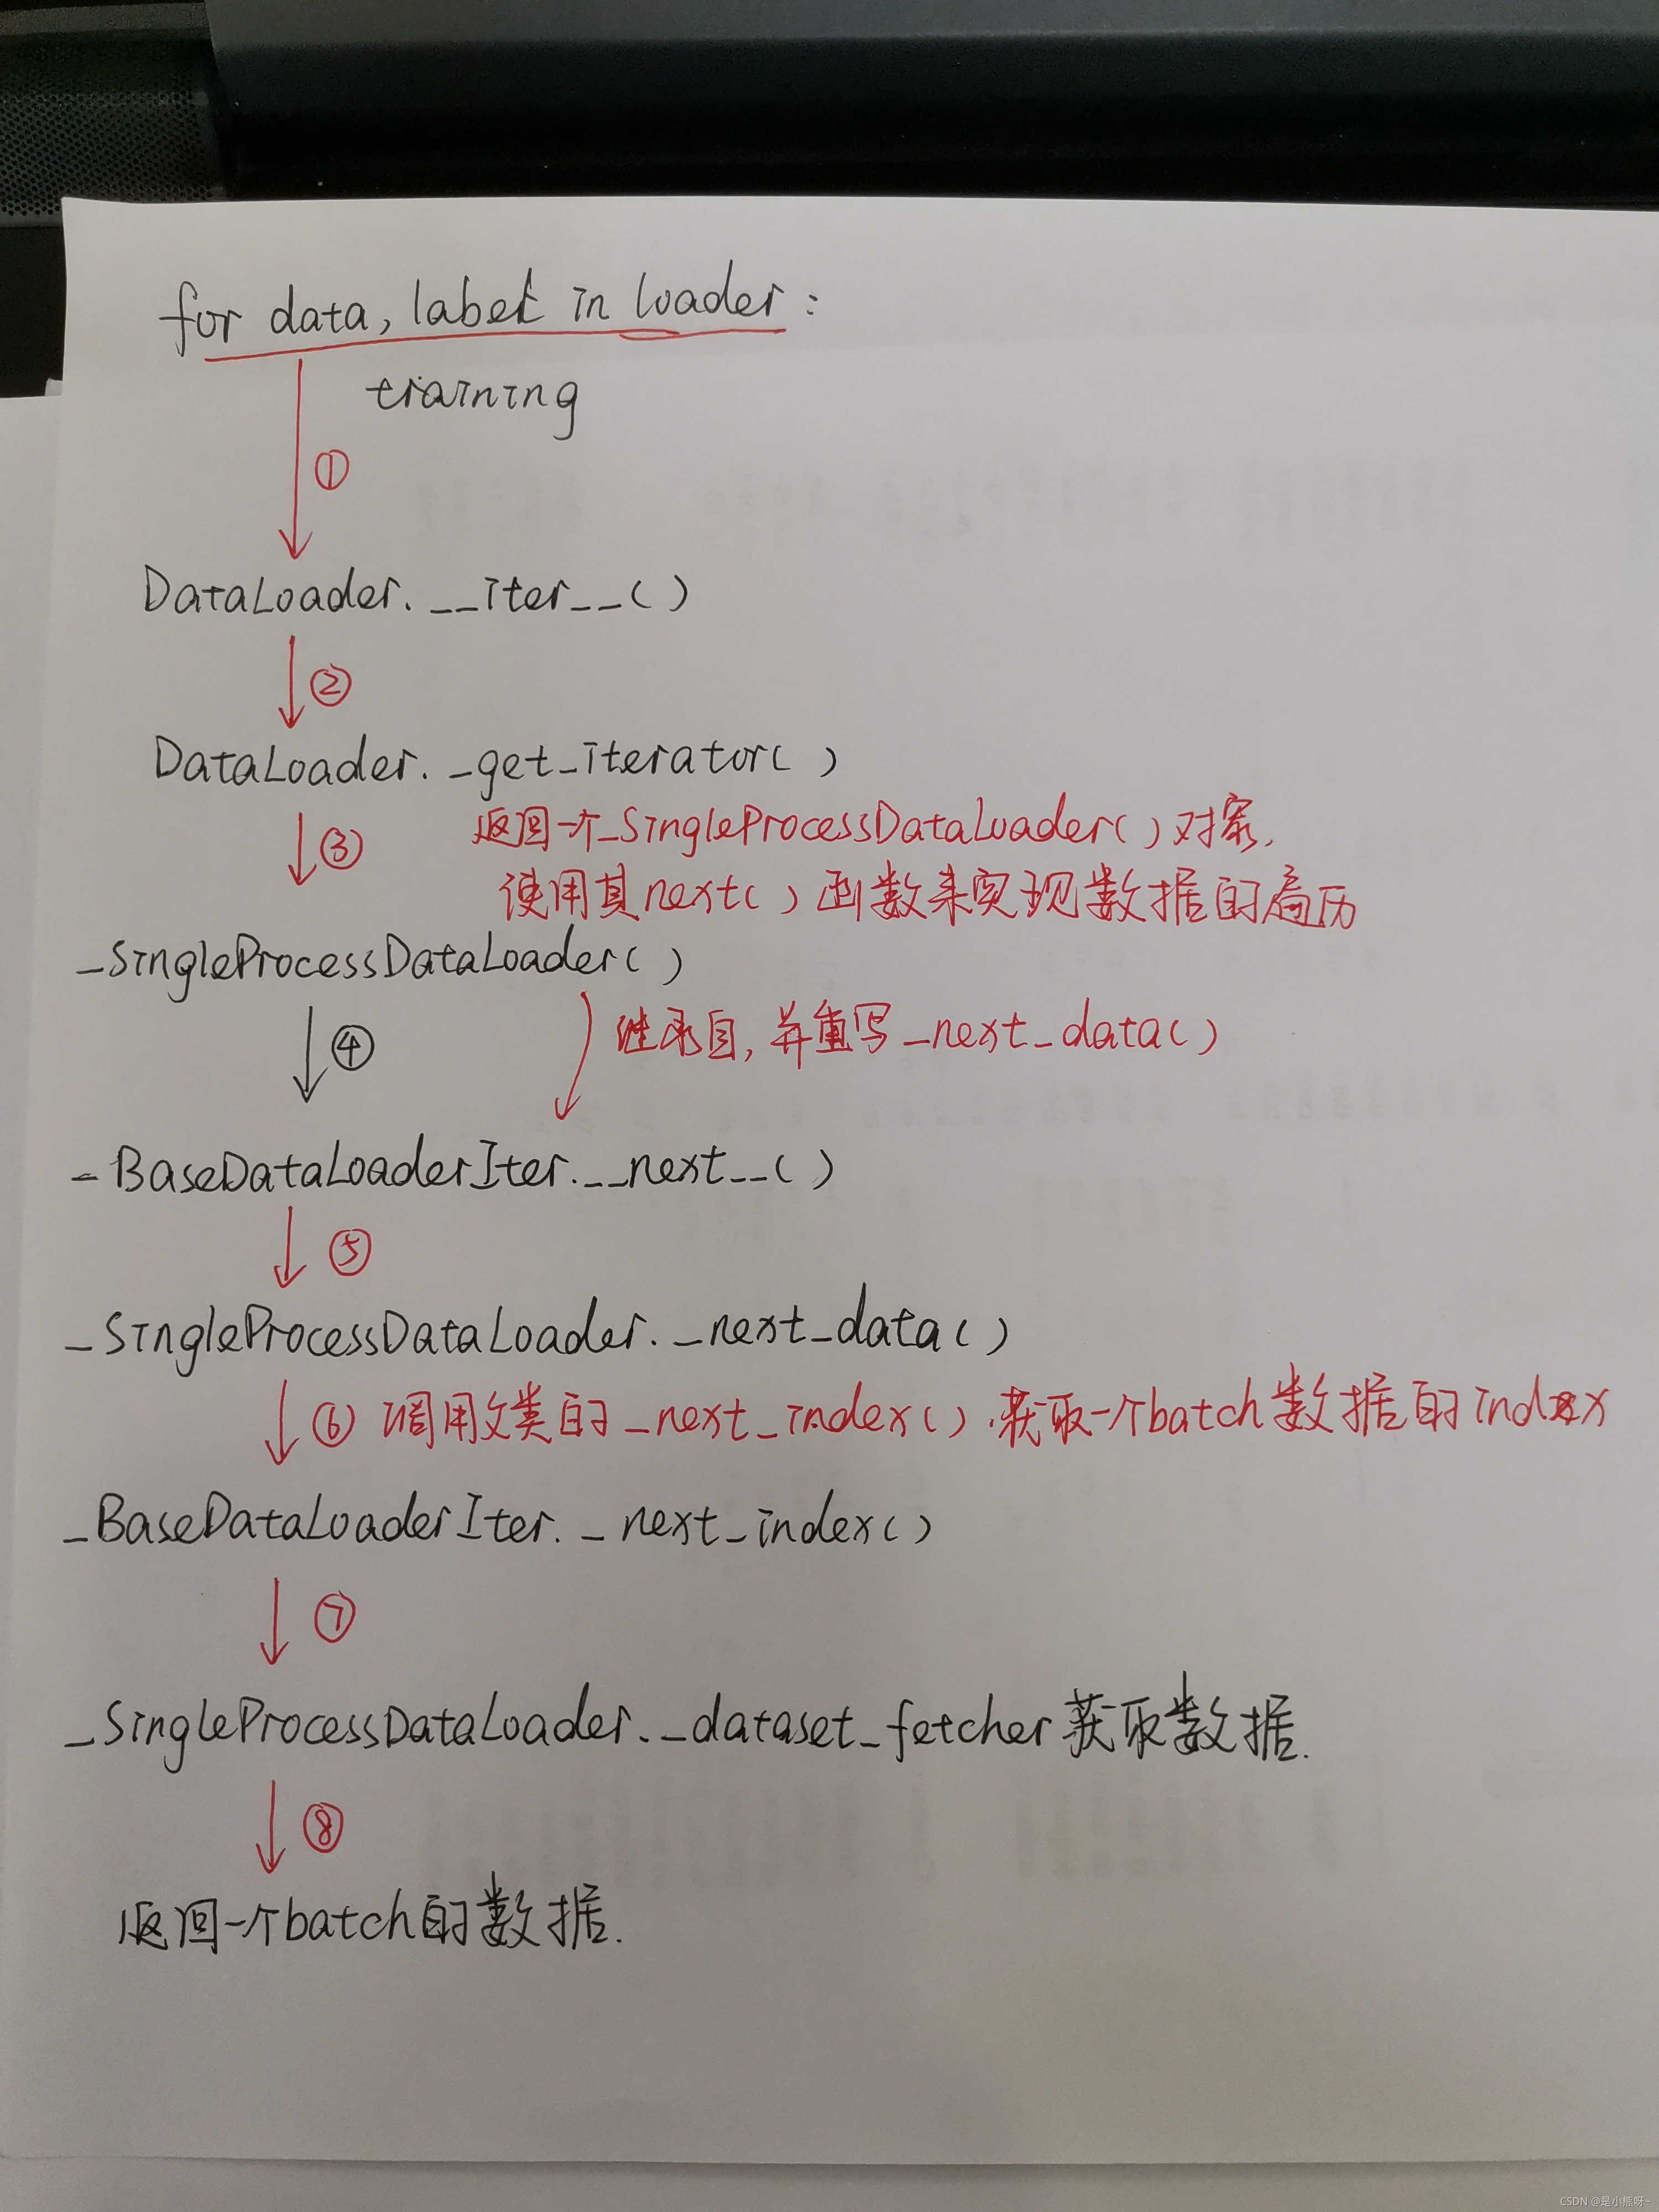 for data, label in loader:
training
①
DataLoader.__iter__()
②
DataLoader._get_iterator()
③ 返回一个_SingleProcessDataLoader()对象,
使用其next()函数来实现数据的遍历
_SingleProcessDataLoader()
④ 继承自,并重写_next_data()
_BaseDataLoaderIter.__next__()
⑤
_SingleProcessDataLoader._next_data()
⑥ 调用父类的_next_index(),获取一个batch数据的index
_BaseDataLoaderIter._next_index()
⑦
_SingleProcessDataLoader._dataset_fetcher获取数据.
⑧
返回一个batch的数据.
CSDN @是小熊呀~